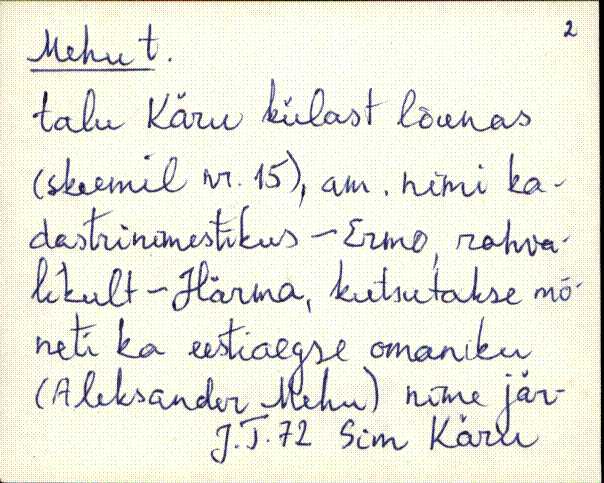 2
Mehu t.
talu Käru külast lõunas
(skeemil nr. 15), am. nimi ka-
dastrinimestikus - Ermo, rahva-
likult - Härma, kutsutakse mõ-
neti ka eestiaegse omaniku
(Aleksander Mehu) nime jär-
J.T. 72 Sim Käru